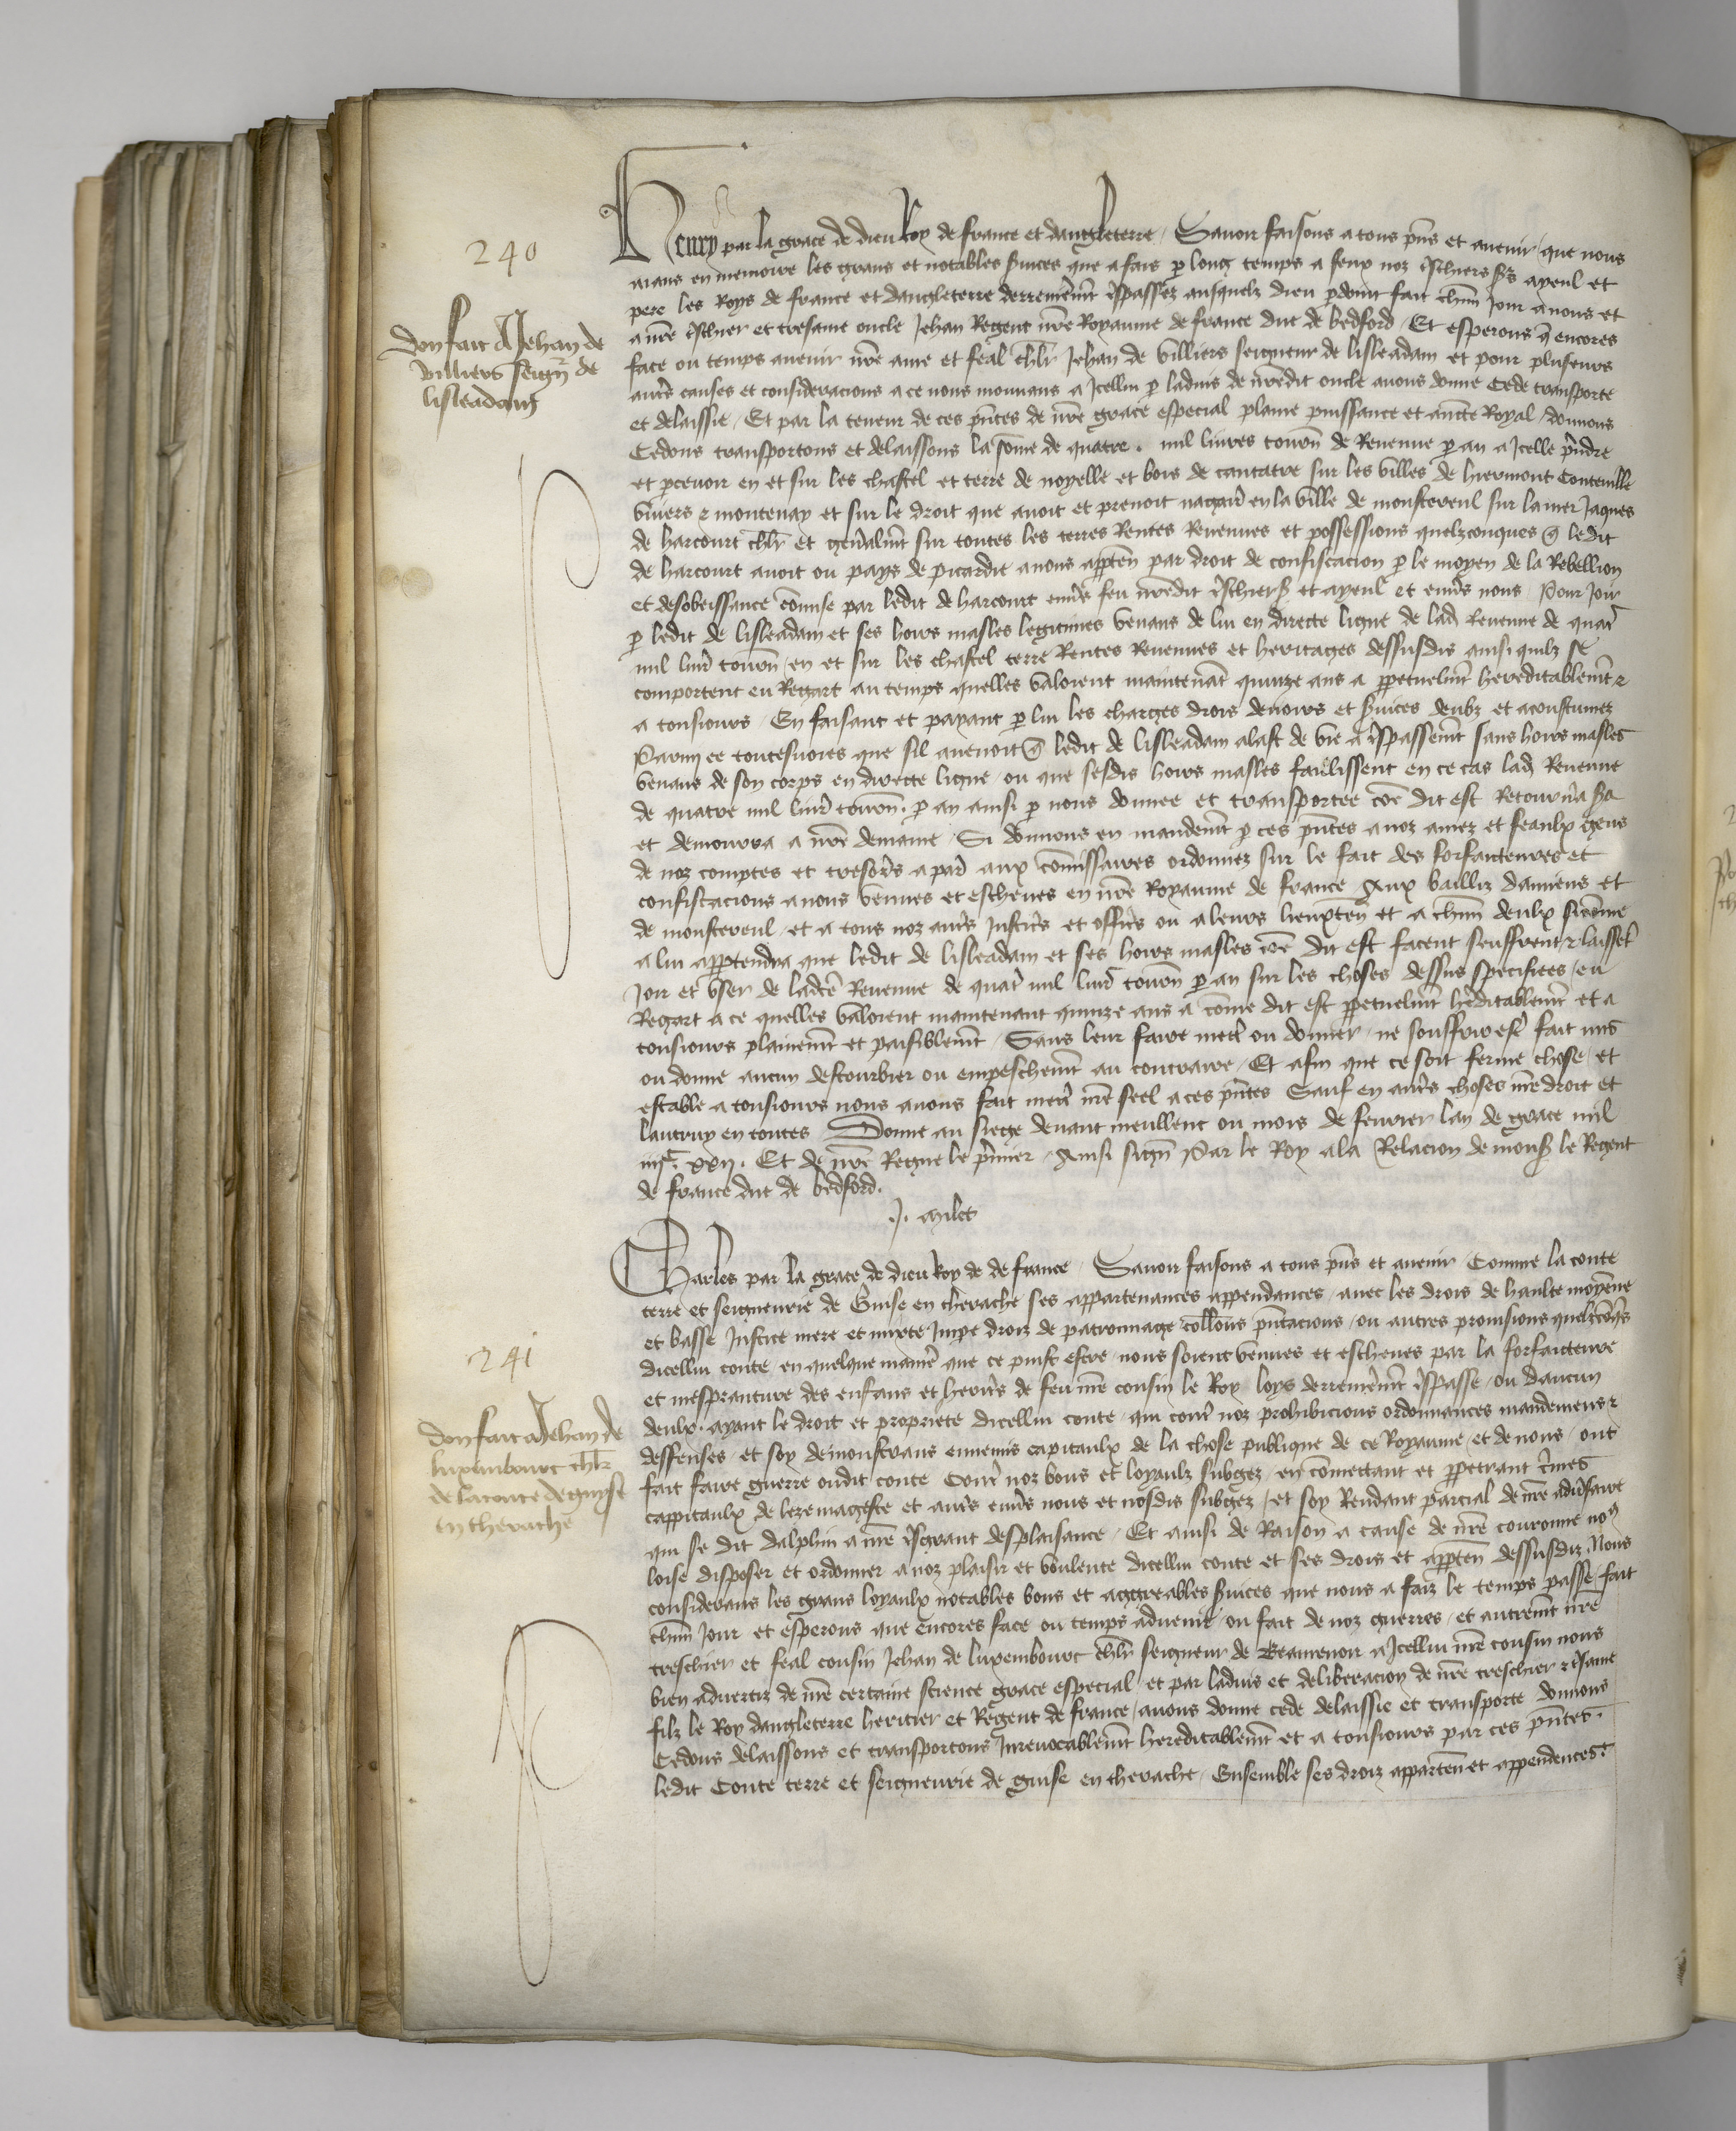 240
Don fait a Jehan de
villiers seignr de
lisleadam
Henry par la grace de dieu Roy de france et dangleterre / Sauoir faisons a tous pns et auenir / que nous
aians en memoire les grans et notables seruices que a fais p long temps a feux noz tschiers srs ayeul et
pere les Roys de france et dangleterre derrenieremt tspassez ausquelz dieu pdoint fait chun jour a nous et
a nre tschier et tresame oncle Jehan Regent nre Royaume de france duc de bedford / Et esperons q encores
face ou temps auenir nre ame et feal chlr Jehan de villiers seigneur de lisleadam et pour pluseurs
autrs causes et consideracions a ce nous mouuans a Jcellui p laduis de nredit oncle auons donne Cede transporte
et delaissie / Et par la teneur de ces pntes de nre grace especial plaine puissance et aucte Royal / donnons
Cedons transportons et delaissons la some de quatre mil liures tourn de Reuenue p an a Jcelle prndre
et pceuoir en et sur les chastel et terre de noyelle et bois de cantatre sur les villes de hiermont Conteuille
viuiers & montenay et sur le droit que auoit et prenoit nagairs en la ville de monstereul sur la mer Jaques
de harcourt chlr et genalmt sur toutes les terres Rentes Reuenues et possessions quelzconques q ledit
de harcourt auoit ou pays de picardie a nous apptn par droit de confiscacion p le moyen de la Rebellion
et desobeissance comise par ledit de harcourt enuers feu nredit tschier sr et ayeul et enuers nous Pour joir
p ledit de lisleadam et ses hoirs masles legitimes venans de lui en directe ligne de lad Reuenue de quatr
mil liurs tourn / en et sur les chastel terre Rentes Reuenues et heritages dessusdis ainsi quilz se
comportent eu Regart au temps quelles valoient maintenat quinze ans a ppetuelmt hereditablemt &
a tousiours / En faisant et payant p lui les charges drois deuoirs et seruices deubz et acoustumez
Parmi ce toutesuoies que sil auenoit q ledit de lisleadam alast de vie a tspassemt sans hoirs masles
venans de son corps en directe ligne / ou que sesdis hoirs masles faulissent en ce cas lad Reuenue
de quatre mil liurs tourn p an ainsi p nous donnee et transportee coe dit est Retournra sera
et demourra a nre demaine / Si donnons en mandemt p ces pntes a noz amez et feaulx gens
de noz comptes et tresorrs a pars aux comissaires ordonnez sur le fait des forfaiteures et
confiscacions a nous venues et escheues en nre Royaume de france Aux bailliz damiens et
de monstereul / et a tous noz autrs justicrs et officrs ou a leurs lieuxten et a chun deulx sicome
a lui apptendra que ledit de lisleadam et ses hoirs masles coe dit est facent seuffrent & laisset
Joir et vser de ladte Reuenue de quatr mil liurs tourn p an sur les choses dessus specifiees / eu
Regart a ce quelles valoient maintenant quinze ans a come dit est ppetuelmt herditablemt et a
tousiours plainemt et paisiblemt / Sans leur faire mettr ou donner / ne souffrir estr fait mis
ou donne aucun destourbier ou empeschemt au contraire / Et afin que ce soit ferme chose / et
estable a tousiours nous auons fait mettr nre seel a ces pntes Sauf en autrs choses nre droit et
lautruy en toutes Donne au siege deuant meullent ou mois de feurier lan de grace mil
iiiic xxij. Et de nre Regne le prmier / Ainsi sign Par le Roy a la Relacion de monsr le Regent
de france duc de bedford.
J. milet
241
don fait a Jehan de
luxembourc chlr
de la conte de guyse
en therache
Charles par la grace de dieu Roy de de france / Sauoir faisons a tous pns et auenir / Comme la conte
terre et seigneurie de Guise en therache ses appartenances appendances / auec les drois de haulte moyene
et basse justice mere et mixte jmpe droiz de patronnage collons pntacions / ou autres prouisions quelzcoqs
dicellui conte / en quelque manier que ce puist estre / nous soient venues et escheues par la forfaiteure
et mespranture des enfans et heritrs de feu nre cousin le Roy loys derrenieremt tspasse / ou daucun
deulx / ayant le droit et propriete dicellui conte / qui contr noz prohibicions ordonnances mandemens &
deffenses / et soy demonstrans ennemis capitaulx de la chose publique de ce Royaume / et de nous / ont
fait faire guerre oudit conte Contr noz bons et loyaulz subgez / en comettant et ppetrant crimes
cappitaulx de lezemageste et autrs enuers nous et nosdis subgez / et soy Rendant parcial de nre aduersaire
qui se dit dalphin a nre tsgrant desplaisance / Et ainsi de Raison a cause de nre couronne no9
loise disposer et ordonner a noz plaisir et voulente dicellui conte et ses drois et apptn dessusdiz Nous
considerans les grans loyaulx notables bons et aggreables seruices que nous a faiz le temps passe / fait
chun jour et esperons que encores face ou temps aduenir / ou fait de noz guerres / et autremt nre
treschier et feal cousin Jehan de luxembourc chlr seigneur de Beaureuoir a Jcellui nre cousin nous
bien aduertiz de nre certaine science grace especial et par laduis et deliberacion de nre treschier & tsame
filz le Roy dangleterre heritier et Regent de france / auons donne cede delaissie et transporte donnons
Cedons delaissons et transportons Jnreuocablemt hereditablemt et a tousiours par ces pntes.
ledit Conte terre et seigneurie de guise en therache / Ensemble ses droiz appartn et appendences.